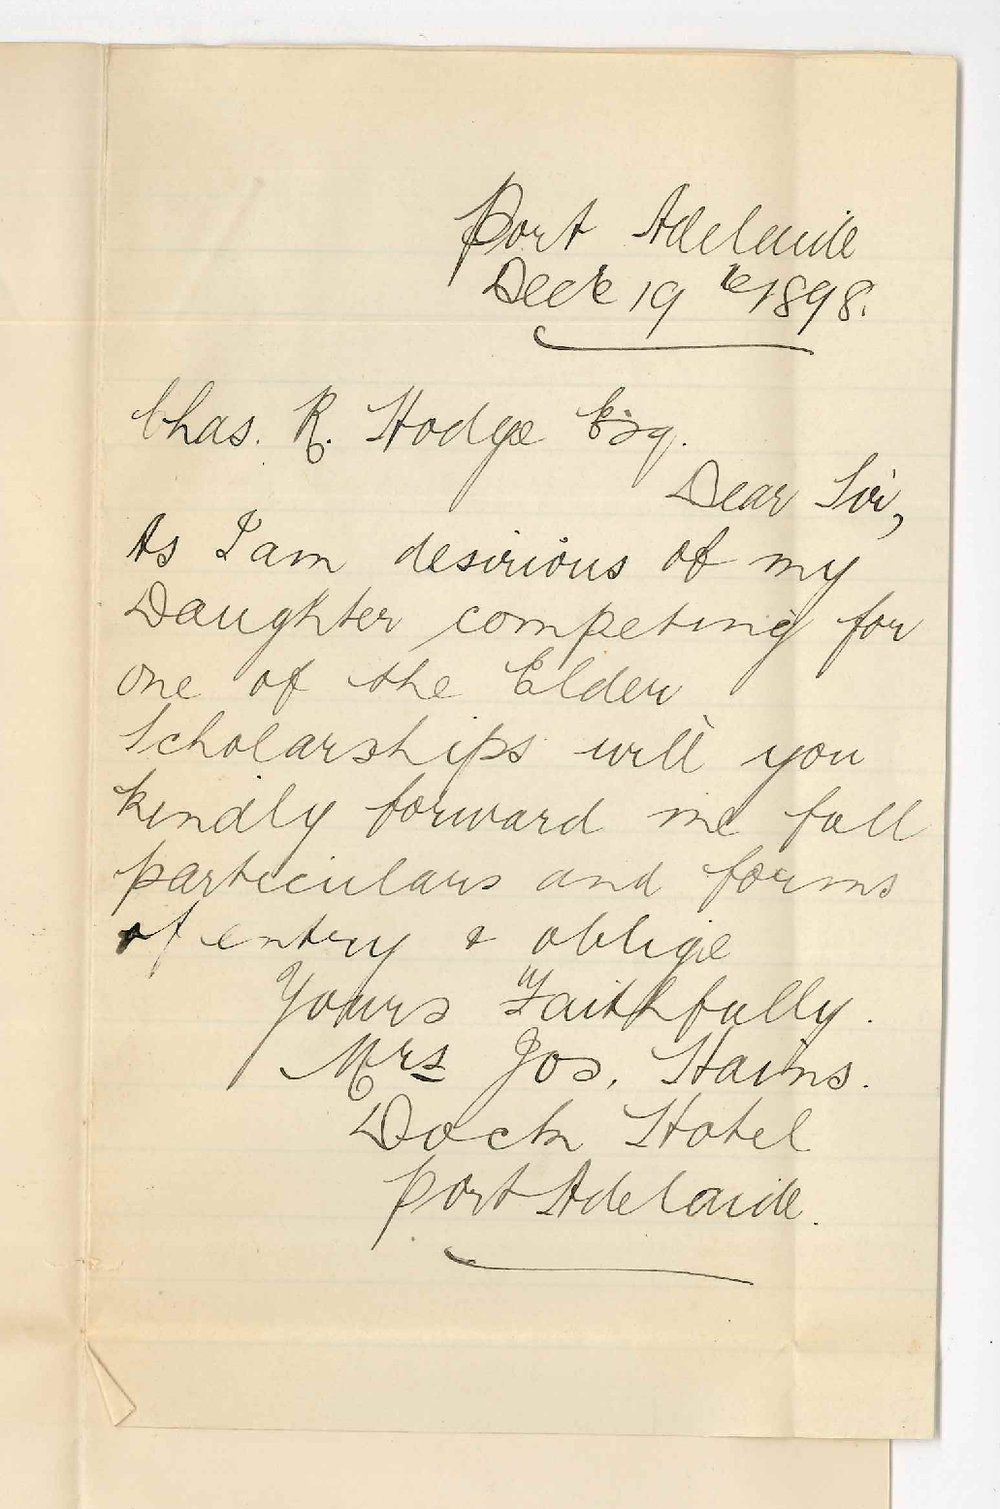 Port Adelaide
Decr 19th 1898.
Chas. R. Hodge Esq.
Dear Sir,
As I am desirious of my
Daughter competing for
one of the Elder
Scholarships will you
kindly forward me full
particulars and forms
of entry & oblige
Yours Faithfully.
Mrs Jos. Hains.
Dock Hotel
Port Adelaide.